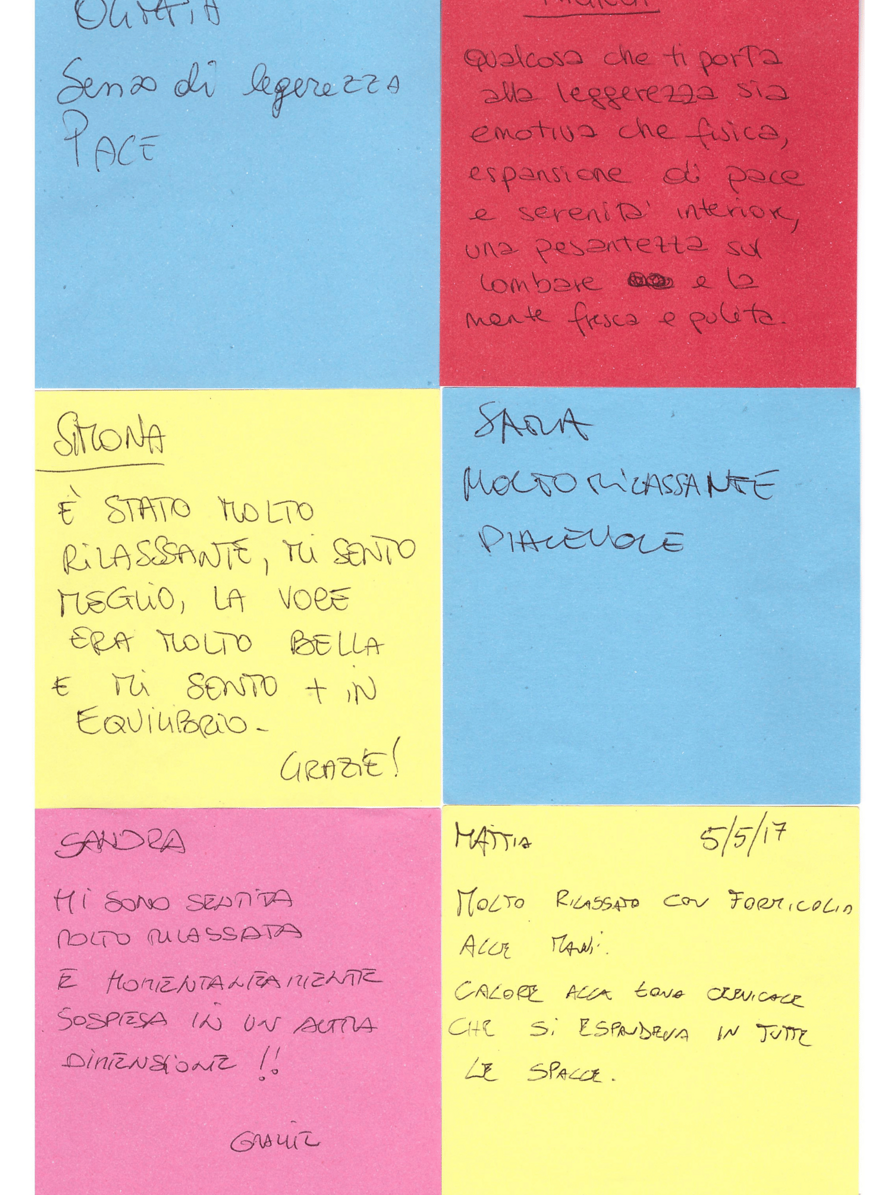 Senso di legerezza
PACE
Qualcosa che ti porta
alla leggerezza sia
emotiva che fisica,
espansione di pace
e serenità interiore,
una pesantezza sul
lombare e la
mente fresca e pulita.
SIMONA
È STATO MOLTO
RILASSSANTE, MI SENTO
MEGLIO, LA VOCE
ERA MOLTO BELLA
E MI SENTO + IN
EQUILIBRIO-
GRAZIE!
SARA
MOLTO RILASSANTE
PIACEVOLE
SANDRA
MI SONO SENTITA
MOLTO RILASSATA
E MOMENTANEAMENTE
SOSPESA IN UN ALTRA
DIMENSIONE !!
GRAZIE
MATTIA 5/5/17
MOLTO RILASSATO CON FORMICOLIO
ALLE MANI.
CALORE ALLA ZONA CERVICALE
CHE SI ESPANDEVA IN TUTTE
LE SPALLE.